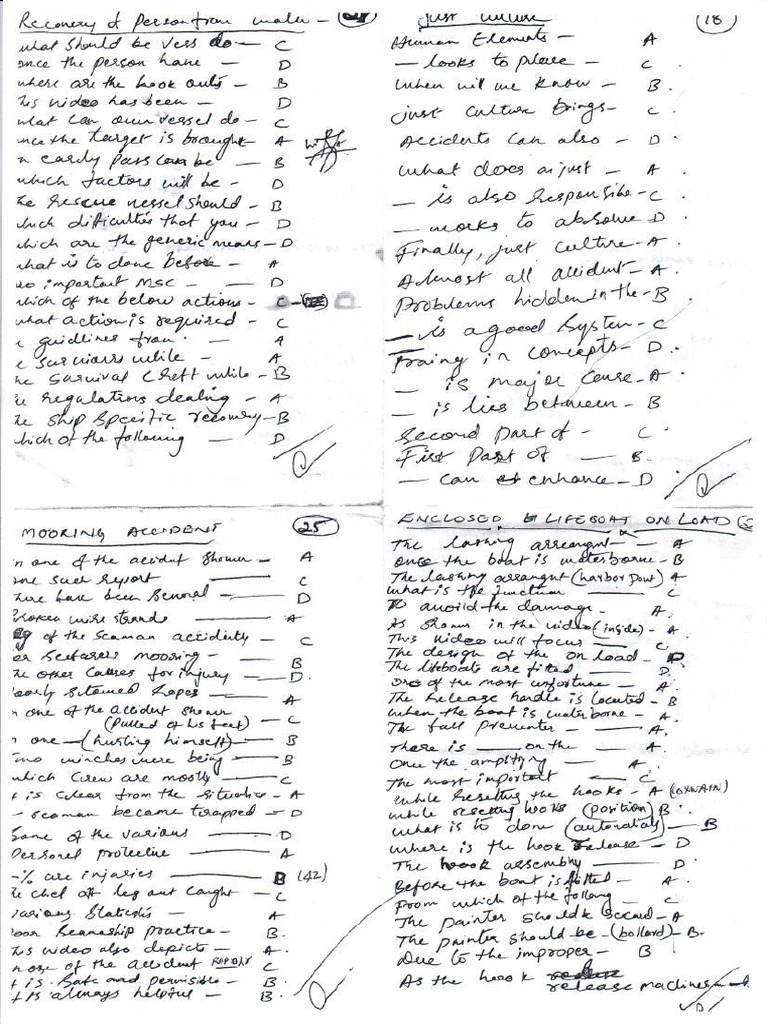 Recovery of Person from water -
what should be vess do - C
once the person have - D
where are the hook outs - B
this video has been - D
what can own vessel do - C
nce the target is brought - A
n early pass can be - B
which factors will be - D
he rescue vessel should - B
which difficulties that you - D
hich are the generic means - D
hat is to done before - A
wo important MSC - D
hich of the below actions - C
what action is required - C
e guidlines from - A
e survivors while - A
he survival craft while - B
he regulations dealing - A
he ship specific recovery - B
hich of the following - D
Just culture 18
Human Elements - A
- looks to place - C
when will we know - B.
just culture brings - C.
Accidents can also - D.
what does a just - A
- is also responsible - C.
- works to absolve - D.
Finally, just culture - A.
Almost all accident - A.
Problems hidden in the - B.
- is a good system - C
Traing in concepts - D.
- is major cause - A.
- is lies between - B
second part of - C.
First Part of - B.
- can enhance - D
MOORING ACCIDENT 25
n one of the accident shower - A
one such report - C
here have been several - D
Broken wire strands - A
of the seaman accidently - C
er seafarers mooring - B
he other causes for injury - D.
early strained ropes - A
n one of the accident shower
(pulled of his feet) - C
n one - (hurling himself) - B
Two winches were being - B
which crew are mostly - C
t is clear from the situation - A
- seaman became trapped - D
Some of the various - D
Personel protective - A
-% are injuries - B (42)
he chef off leg out caught - C
various statistis - A
oor seamaship practice - B.
his video also depicts - A.
n one of the accident report C
t is safe and permisible - B.
t is always helpful - B.
ENCLOSED LIFEBOAT ON LOAD
The lashing arrangnt - A
once the boat is waterborne - B
The lashing arrangnt (harbor pont) A
what is the function - C
To avoid the damage - A.
As shown in the video (inside) - A.
This video will focus - C.
The design of the on load - D.
The lifeboats are fitted - D.
one of the most unfortune - A.
The Release handle is located - B
when the boat is waterborne - A.
The fall preventer - A.
There is - on the - A.
Once the amplifying - A.
The most important - C
while resetting the hooks - A
while resetting hooks (position) B.
what is to done (automatials) - B
where is the hook release - D
The hook assembly - D.
Before the boat is fitted - A.
From which of the following - C
The painter should be secured - A
The painter should be - (bollard) - B.
Due to the improper - B
As the hook release machines - D